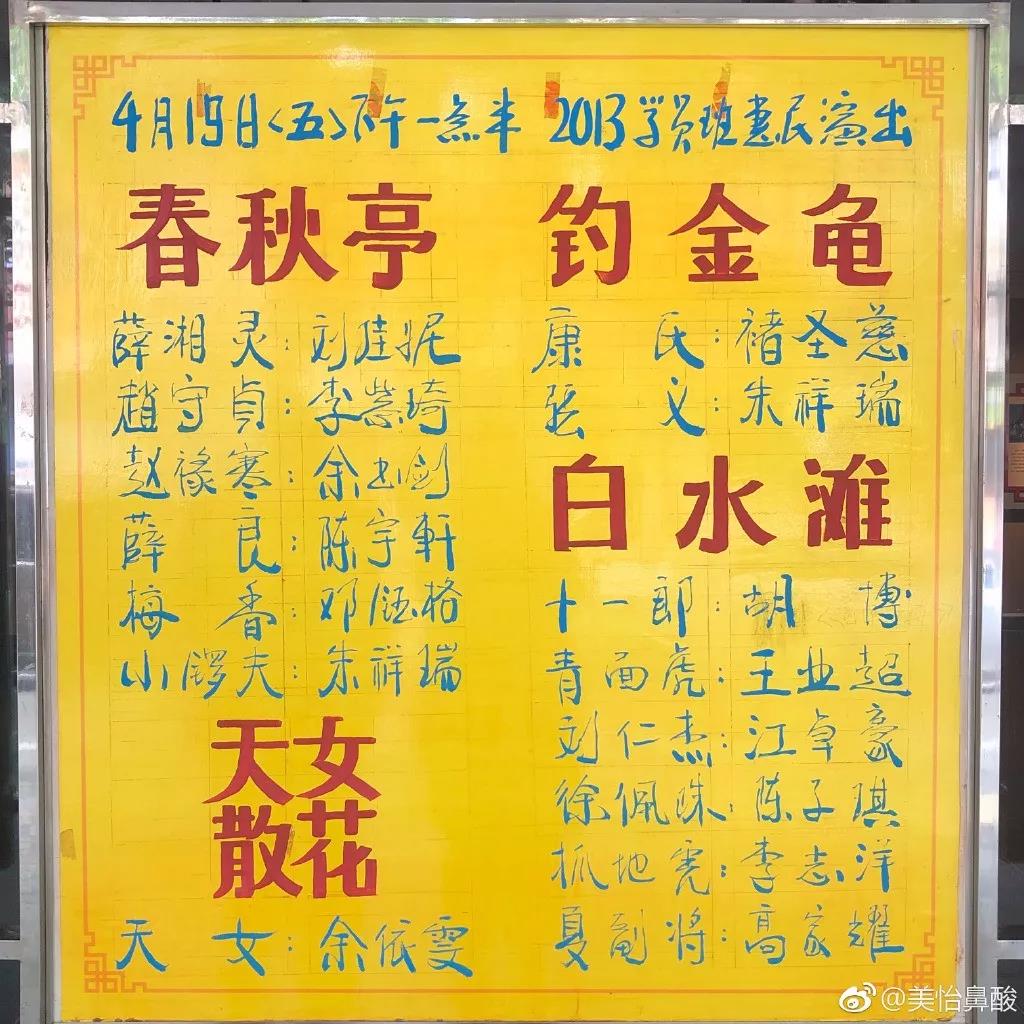 4月19日<五>下午一点半 2013学员班惠民演出
春秋亭
薛湘灵:刘佳妮
趙守貞:李紫琦
赵禄寒:余书剑
薛良:陈宇軒
梅香:邓钰格
小锣夫:朱祥瑞
天女
散花
天女:余依雯
钓金龟
康氏:褚圣慈
张义:朱祥瑞
白水滩
十一郎:胡博
青面虎:王业超
刘仁杰:江卓豪
徐佩珠:陈子琪
抓地虎:李志洋
夏副将:高家耀
@美怡鼻酸